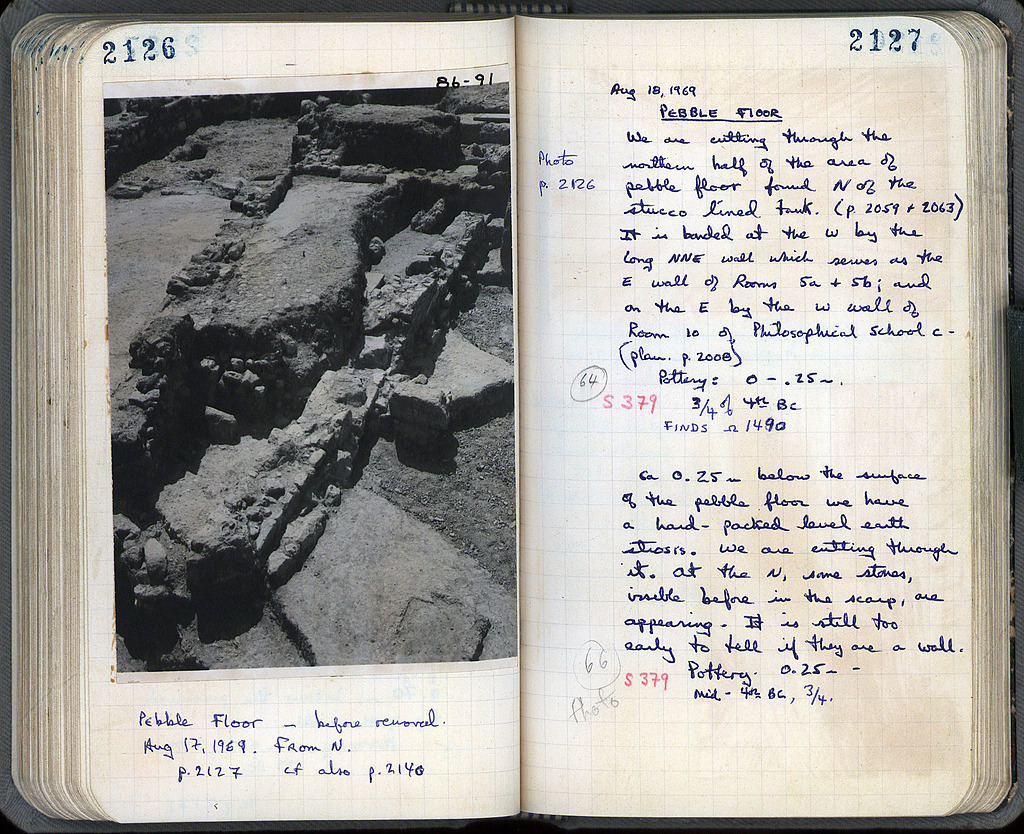 2126
86-91
Pebble Floor – before removal.
Aug 17, 1969. From N.
p. 2127 cf also p. 2140
2127
Aug 18, 1969
PEBBLE FLOOR
Photo
p. 2126
We are cutting through the
northern half of the area of
pebble floor found N of the
stucco lined tank. (p. 2059 + 2063)
It is bonded at the W by the
long NNE wall which serves as the
E wall of Rooms 5a + 5b; and
on the E by the W wall of
Room 10 of Philosophical School C -
(plan. p. 2008)
64
Pottery: 0 - .25 m.
S 379
3/4 of 4th BC
FINDS Ω 1490
ca 0.25 m below the surface
of the pebble floor we have
a hard-packed level earth
strosis. We are cutting through
it. At the N, some stones,
visible before in the scarp, are
appearing. It is still too
early to tell if they are a wall.
66
Photo
S 379
Pottery. 0.25 - -
mid - 4th BC, 3/4.